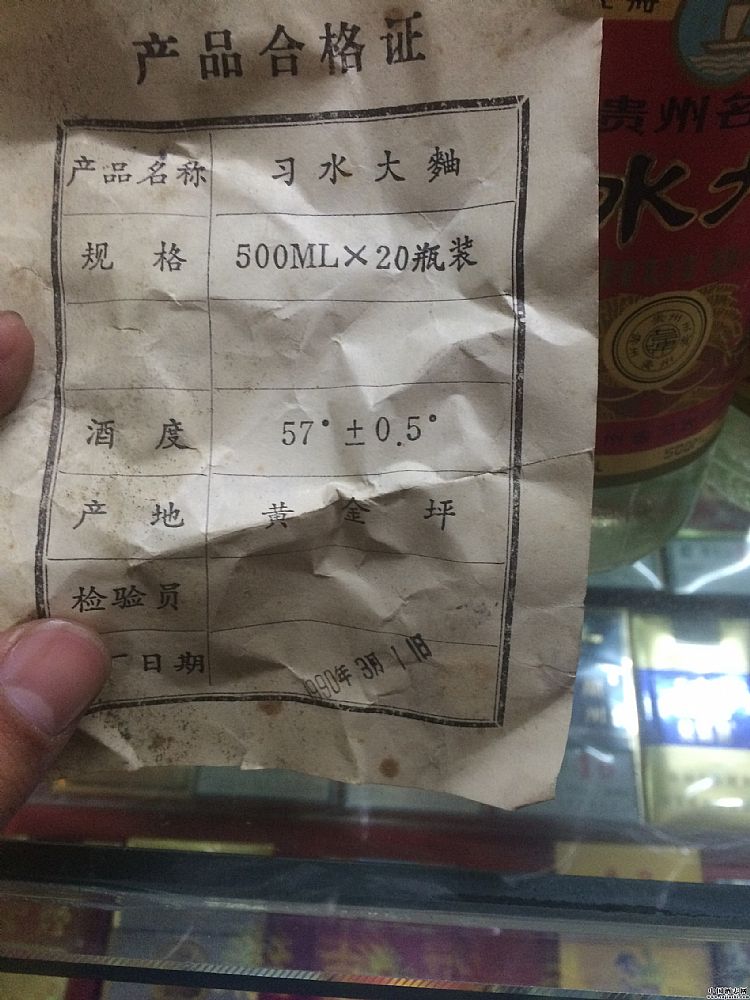 产品合格证
产品名称 习水大麯
规格 500ML×20瓶装
酒度 57°±0.5°
产地 黄金坪
检验员
厂日期 1990年3月11日
贵州名
水大
中国酒志网